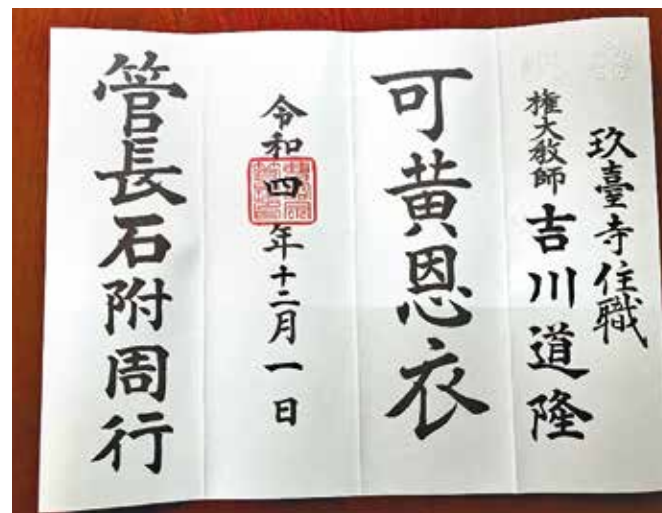 玖臺寺住職
権大教師 吉川道隆
可黄恩衣
令和四年十二月一日
管長石附周行